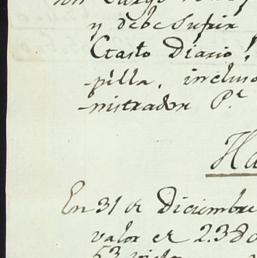 y debe sufrir
Gasto Diario
pilla, incluso
nistrador Pr
Ha
En 31 de Diciembre
valor de 2.380